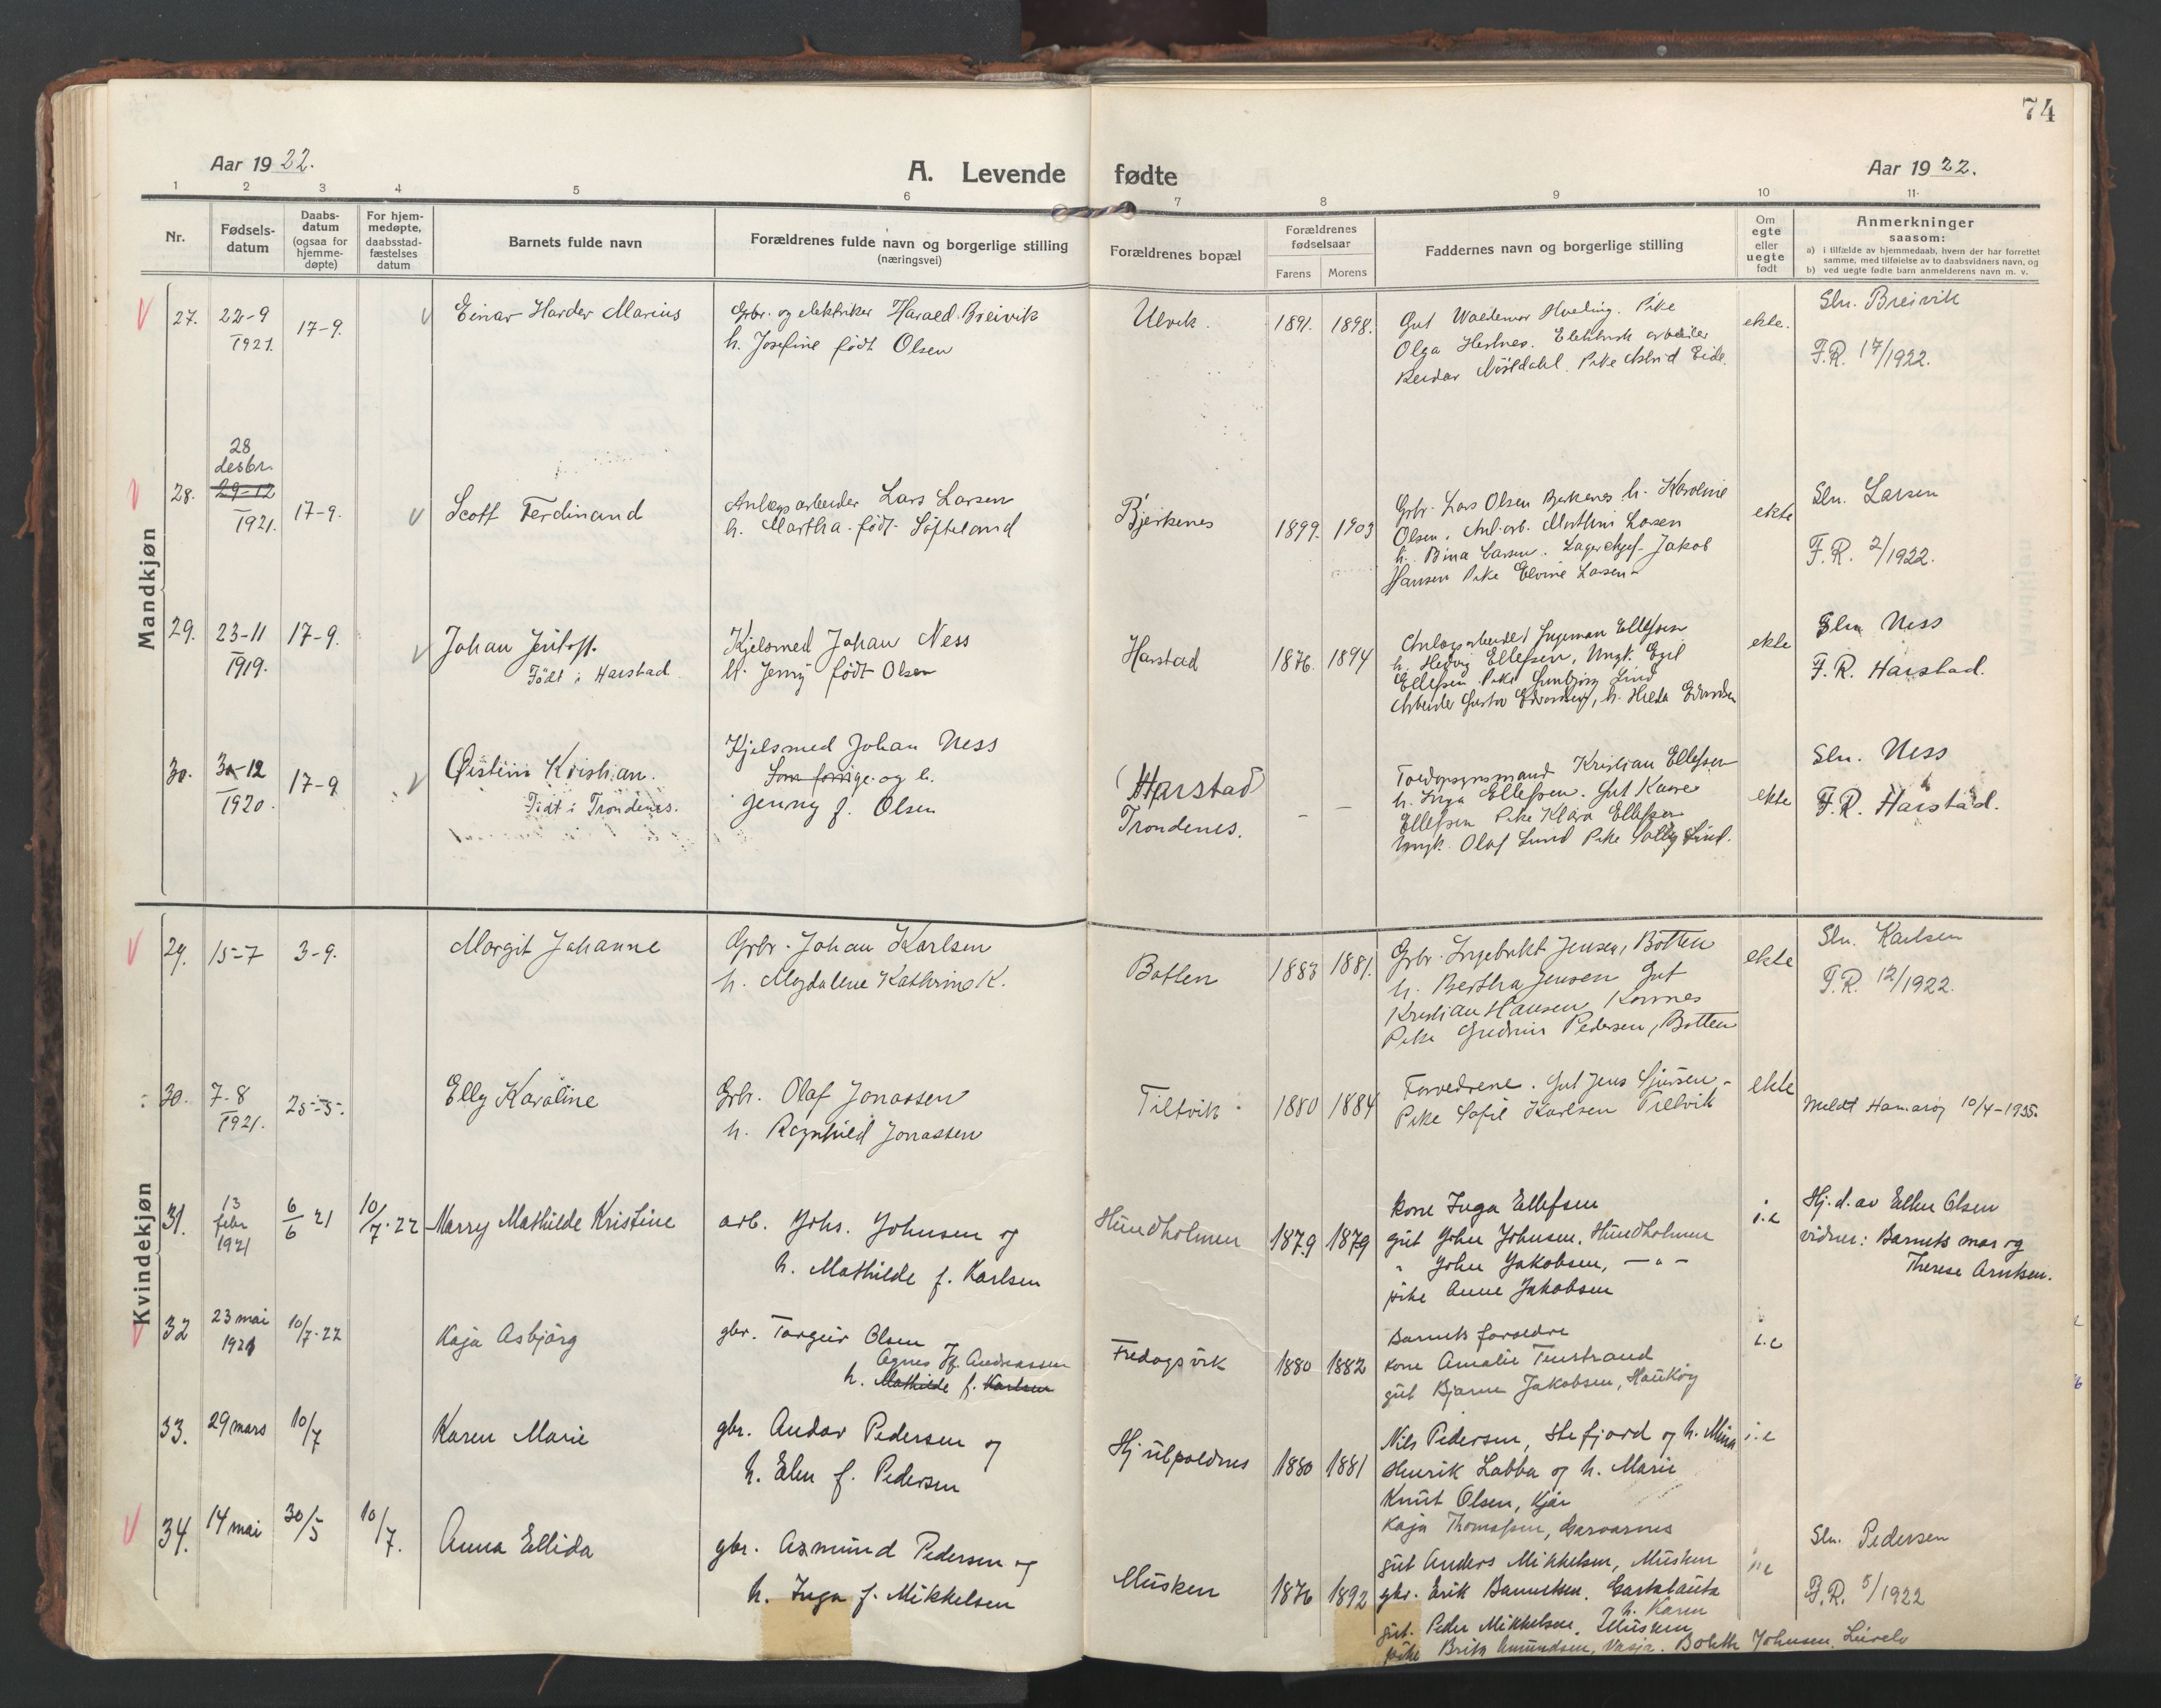 74
Aar 1922.
A. Levende fødte
Aar 1922.
1 2 3 4 5 6 7 8 9 10 11
Nr.
Fødsels-
datum
Daabs-
datum
(ogsaa for
hjemme-
døpte)
For hjem-
medøpte,
daabsstad-
fæstelses
datum
Barnets fulde navn
Forældrenes fulde navn og borgerlige stilling
(næringsvei)
Forældrenes bopæl
Forældrenes
fødselsaar
Farens Morens
Faddernes navn og borgerlige stilling
Om
egte
eller
uegte
født
Anmerkninger
saasom:
a) i tilfælde av hjemmedaab, hvem der har forrettet
samme, med tilføielse av to daabsvidners navn, og
b) ved uegte fødte barn anmelderens navn m. v.
Mandkjøn
27.
22-9
1921.
17-9.
Einar Harder Marius
Gbr. og elektriker Harald Breivik
h. Josefine født Olsen
Ulvik.
1891. 1898.
Gut Waldemar Hveding. Pike
Olga Hestnes. Elektrisk arbeider
Reidar Nøstdahl. Pike Astrid Eide.
ekte.
Sln. Breivik
F.R. 17/1922.
28.
28
desbr.
29-12
1921.
17-9.
Scott Ferdinand
Anlægsarbeider Lars Larsen
h. Martha født Softeland
Bjerkenes
1899. 1903
Grbr. Lars Olsen Bjerkenes h. Karoline
Olsen. Anl.arb. Marthin Larsen
h. Bina Larsen. Jakob
Hansen Pike Elvine Larsen
ekte
Sln. Larsen
F.R. 2/1922.
29.
23-11
1919.
17-9.
Johan Jentoft.
Født i Harstad
Kjelsmed Johan Ness
h. Jenny født Olsen
Harstad
1876. 1894
Anlægsarbeider Ingeman Ellefsen
h. Hedvig Ellefsen, Ungk. Egil
Ellefsen Pike Gunbjørg Lind
Arbeider Gustav Edvardsen, h. Hilda Edvardsen
ekte
Sln Ness
F.R. Harstad.
30.
30-12
1920.
17-9
Øistein Kristian.
Født i Trondenes.
Kjelsmed Johan Ness
Som forrige og h.
Jenny f. Olsen
(Harstad)
Trondenes.
– –
Toldopsynsmand Kristian Ellefsen
h. Inga Ellefsen. Gut Kaare
Ellefsen Pike Klara Ellefsen
Ungk. Olaf Lind Pike Solly Lind.
ekte
Sln. Ness
F.R. Harstad.
Kvindekjøn
29.
15-7
3-9.
Margit Johanne
Grbr. Johan Karlsen
h. Magdalene Kathrine K.
Botten
1883 1881.
Grbr. Ingebrikt Jensen, Botten
h. Bertha Jensen Gut
Kristian Hansen, Korsnes
Pike Gudrun Pedersen, Botten
ekte
Sln. Karlsen
F.R. 12/1922.
30.
7-8
1921.
25-5-.
Elly Karoline
Grbr. Olaf Jonassen
h. Ragnhild Jonassen
Tiltvik
1880 1884
Forældrene. Gut Jens Sjursen -
Pike Sofie Karlsen Tiltvik
ekte
Meldt Hamarøy 10/4-1935.
31.
13
febr
1921
6/6 21
10/7. 22
Marry Mathilde Kristine
arb. Johs. Johnsen og
h. Mathilde f. Karlsen
Hundholmen
1879 1879
Kone Inga Ellefsen
gut John Johnsen, Hundholmen
" John Jakobsen, — " —
pike Anne Jakobsen
i.e
Hj. d. av Ellen Olsen
vidner: Barnets mor og
Therese Arntsen.
32
23 mai
1921
10/7. 22
Kaja Asbjörg
gbr. Torgeir Olsen og
Agnes Jf. Andreassen
h. Mathilde f. Karlsen
Fredagsvik
1880 1882
Barnets foreldre
kone Amalie Tenstrand
gut Bjarne Jakobsen, Haukøy
i.e
33.
29 mars
10/7
Karen Marie
gbr. Andar Pedersen og
h. Elen f. Pedersen
Hjulpoldnes
1880 1881
Nils Pedersen, Stefjord og h. Mina
Henrik Labba og h. Marie
Knut Olsen, Kjár
Kaja Thomassen, Garvarnes
i.e
34.
14 mai
30/5
10/7.
Anna Ellida
gbr. Asmund Pedersen og
h. Inga f. Mikkelsen
Musken
1876 1892
gut Anders Mikkelsen, Musken
gbr. Erik
h. Karen
gut. Peder Mikkelsen, Musken
pike Brita Amundsen, Vasja. Bolette Johnsen.
i.e
Sln. Pedersen
F.R. 5/1922